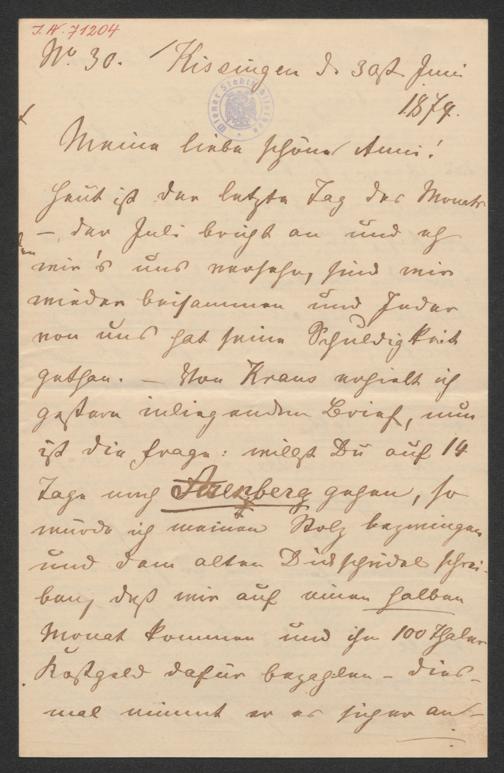 I.N. 71204
No. 30. Kissingen d. 30st Juni
1879.
Wiener Stadtbibliothek
Meine liebe schöne Anni!
Heut ist der letzte Tag des Monats
– der Juli bricht an und eh
wir's uns versehn, sind wir
wieder beisammen und Jeder
von uns hat seine Schuldigkeit
gethan. – Von Kraus erhielt ich
gestern inliegenden Brief, nun
ist die Frage: willst Du auf 14
Tage nach gehen, so
würde ich meinen Stolz bezwingen
und dem alten Dickschädel schrei-
ben, daß wir auf einen halben
Monat kommen und ihm 100 Thaler
Kostgeld dafür bezahlen – dies-
mal nimmt er es sicher an –